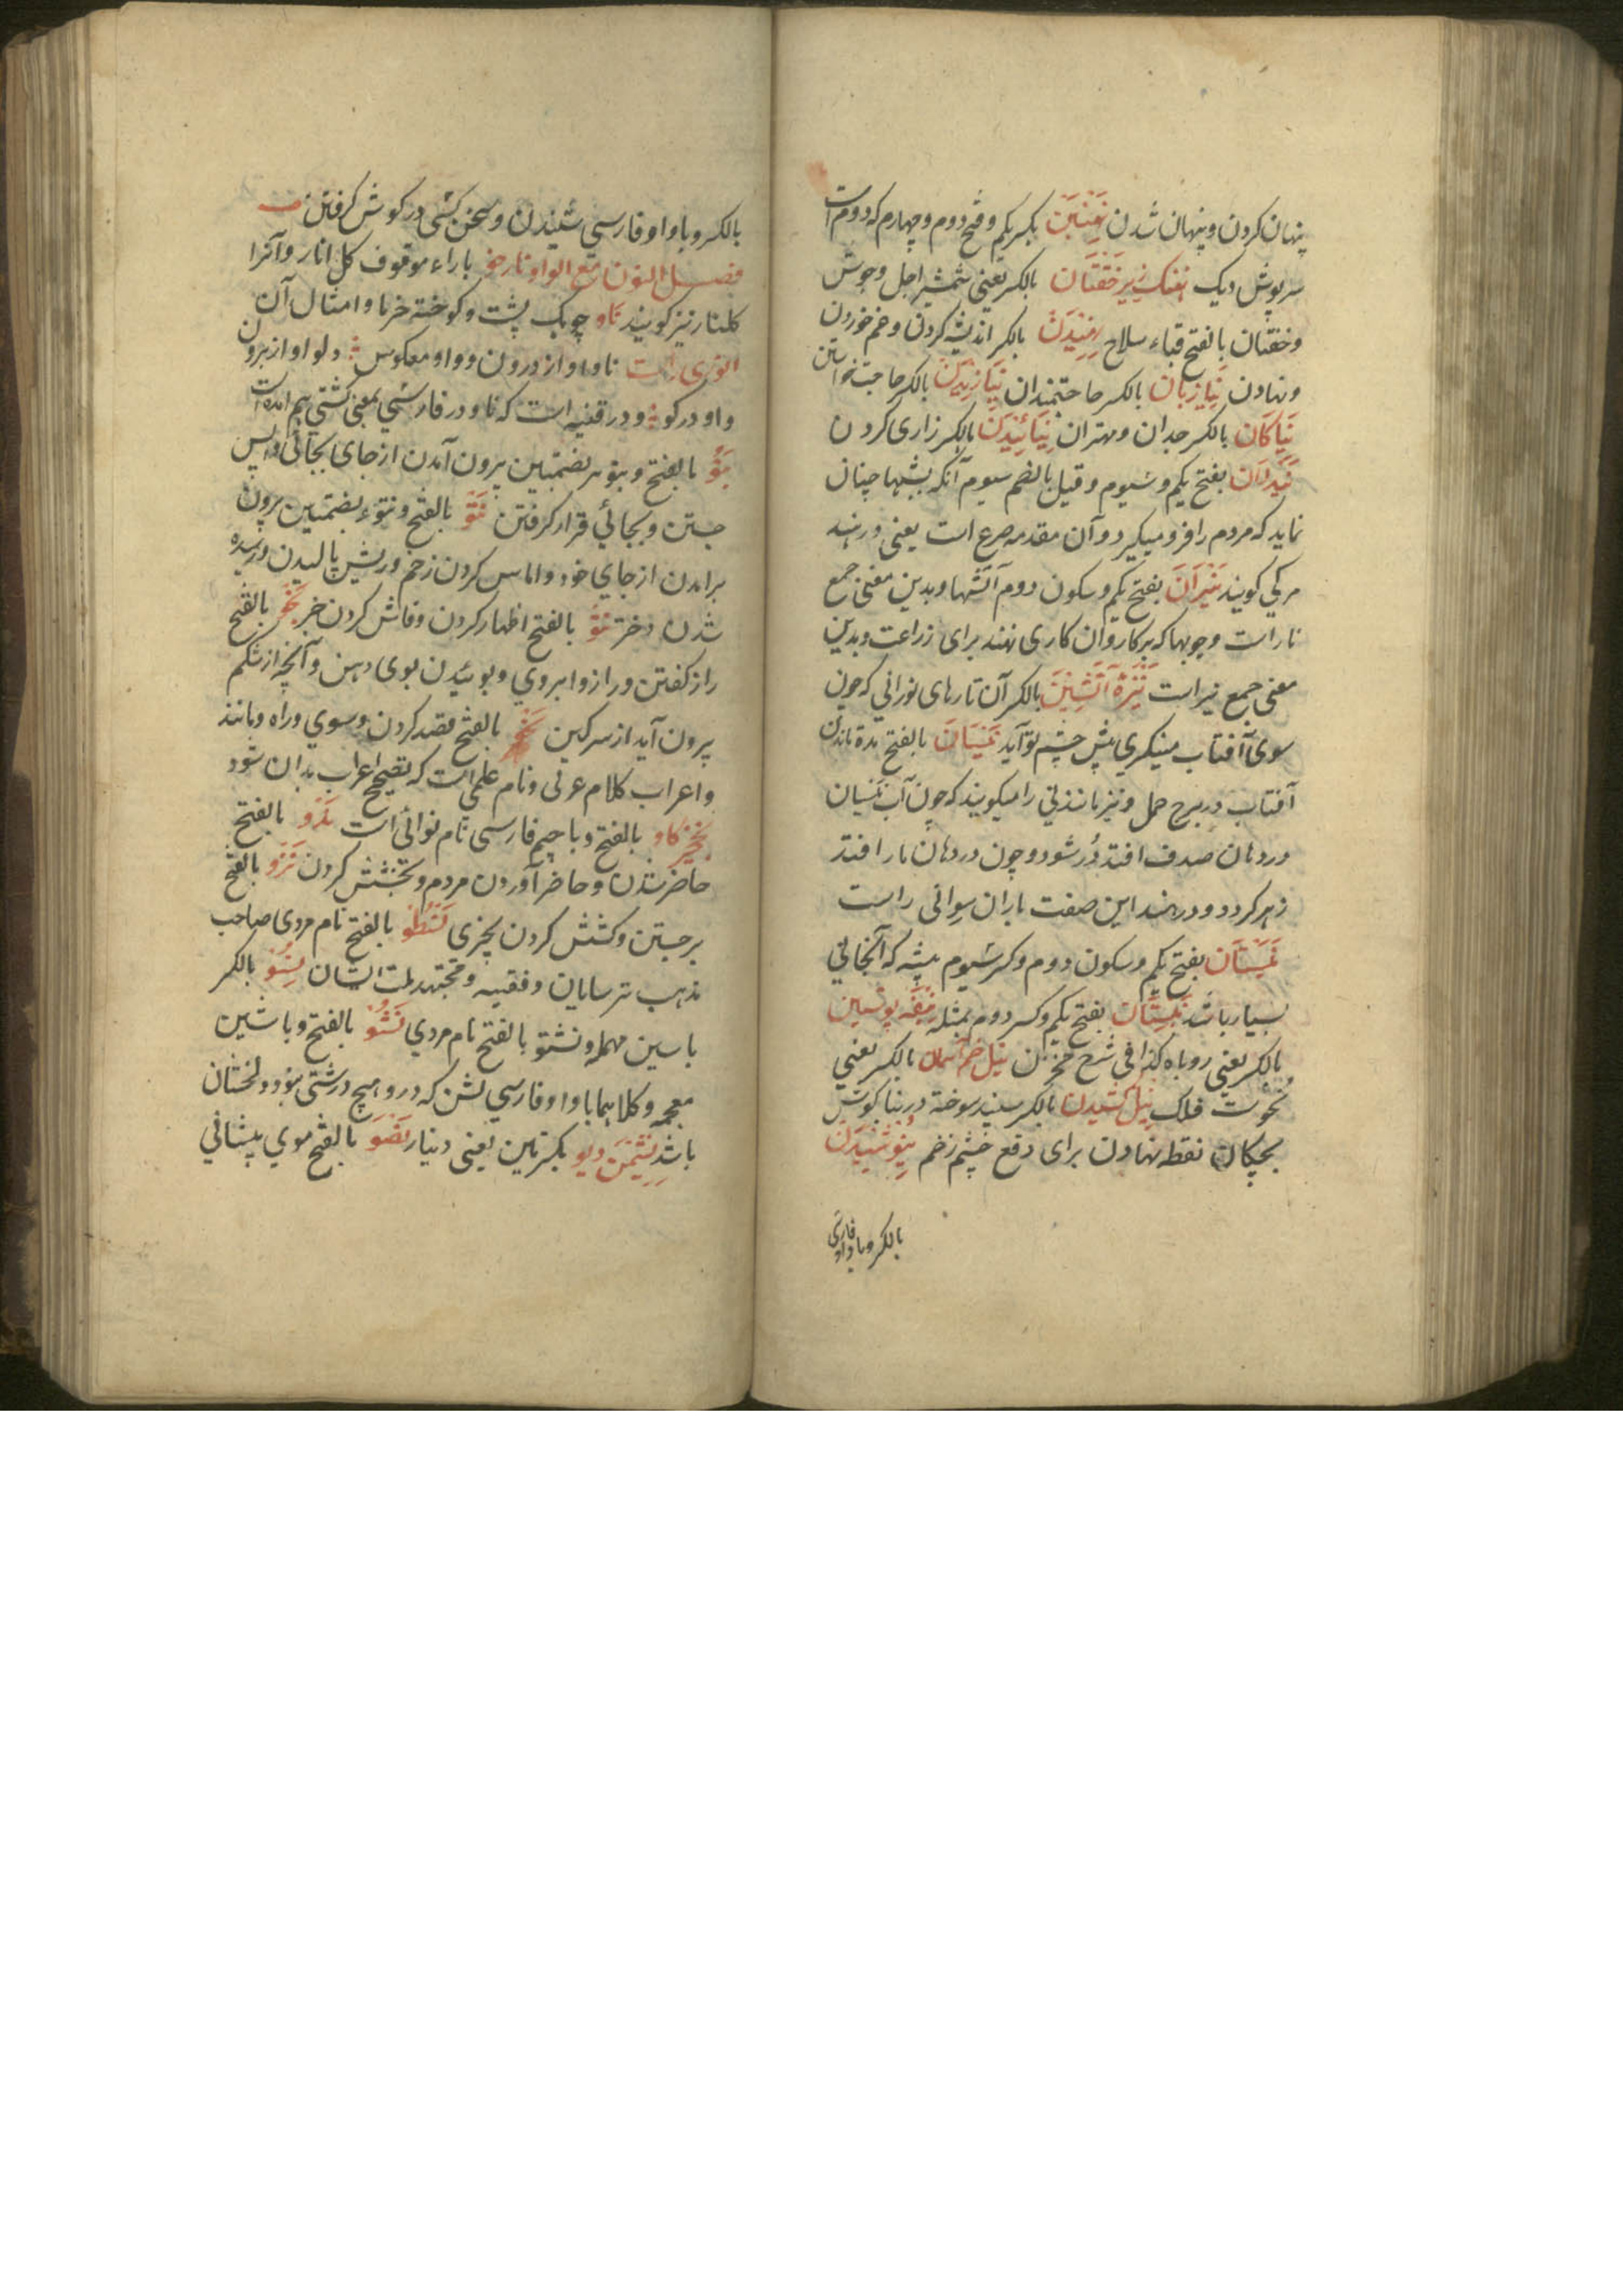 پنهان کردن و پنهان شدن نهنبن بکسر یکم و فتح دوم و چهارم که دوم است
سرپوش دیک نهنک زیر خفتان بالکسر یعنی شمشیر اجل و جوش
و خفتان بالفتح قباء سلاح بالکسر اندیشه کردن و غم خوردن
و نهادن نیازیان بالکسر حاجتمندان نیازیدن بالکسر حاجت خواستن
نیاکان بالکسر جدان و مهتران نیائیدن بالکسر زاری کردن
نیدلان بفتح یکم و سیوم و قیل بالضم سیوم آنکه بشبها چنان
نماید که مردم را فرو میکیرد و آن مقدمه صرع است یعنی در هند
مرکی کویند نیران بفتح یکم و سکون دوم آتشها و بدین معنی جمع
نار است و چوبها که بر کاروان کاری نهند برای زراعت و بدین
معنی جمع نیر است نیزه آتشین بالکسر آن تارهای نورانی که چون
سوی آفتاب مینکری پیش چشم تو آید نیسان بالفتح مدة ماندن
آفتاب در برج حمل و نیز بارانی را میکویند که چون آب نیسان
در دهان صدف افتد در شود و چون در دهان مار افتد
زهر کردد و در هند این صفت باران سواتی راست
نیستان بفتح یکم و سکون دوم و کسر سیوم بیشه که آنجا نی
بسیار باشد نیستان بفتح یکم و کسر دوم مثله نیفه پوستین
بالکسر یعنی روباه کذا فی شرح مخزن نیل خم آسمان بالکسر یعنی
نحوست فلک نیل کشیدن بالکسر سپند سوخته در بناکوش
بچکان نقطه نهادن برای دفع چشم زخم نیوشیدن
بالکسر و با واو فارسی
بالکسر و با واو فارسی شنیدن و سخن کسی در کوش کرفتن
فصل النون مع الواو نارخو با راء موقوف کل انار و آنرا
کلنار نیز کویند ناو چوبک پشت و کوخته خرما و امثال آن
انوری راست ناو او از درون و واو معکوس دلو او از برون
واو در کو و در قنیه است که ناو در فارسی بمعنی کشتی هم آمده است
نبو بالفتح و نبوء بضمتین بیرون آمدن از جای بجائی و پس
جستن و بجائی قرار کرفتن نتو بالفتح و نتوء بضمتین بیرون
برامدن از جای خود و اماس کردن زخم و ریش و بالیدن و رسیده
شدن دختر نثو بالفتح اظهار کردن و فاش کردن خبر نجو بالفتح
راز کفتن و راز و ابروی و بوئیدن بوی دهن و آنچه از شکم
بیرون آید از سرکین نحو بالفتح قصد کردن و سوی و راه و مانند
و اعراب کلام عربی و نام علمی است که تصحیح اعراب بدان شود
نخچیرکاو بالفتح و با جیم فارسی نام نوائی است ندو بالفتح
حاضر شدن و حاضر آوردن مردم و بخشش کردن نزو بالفتح
برجستن و کشش کردن بچیزی نسطو بالفتح نام مردی صاحب
مذهب ترسایان و فقیه و مجتهد ملت ایشان نسو بالکسر
با سین مهمله و نشتو بالفتح نام مردی نشو بالفتح و با شین
معجمه و کلاهما با واو فارسی لشن که در و هیچ درشتی نبود و لخشان
باشد نشیمن دیو بکسرتین یعنی دنیا نضو بالفتح موی پیشانی